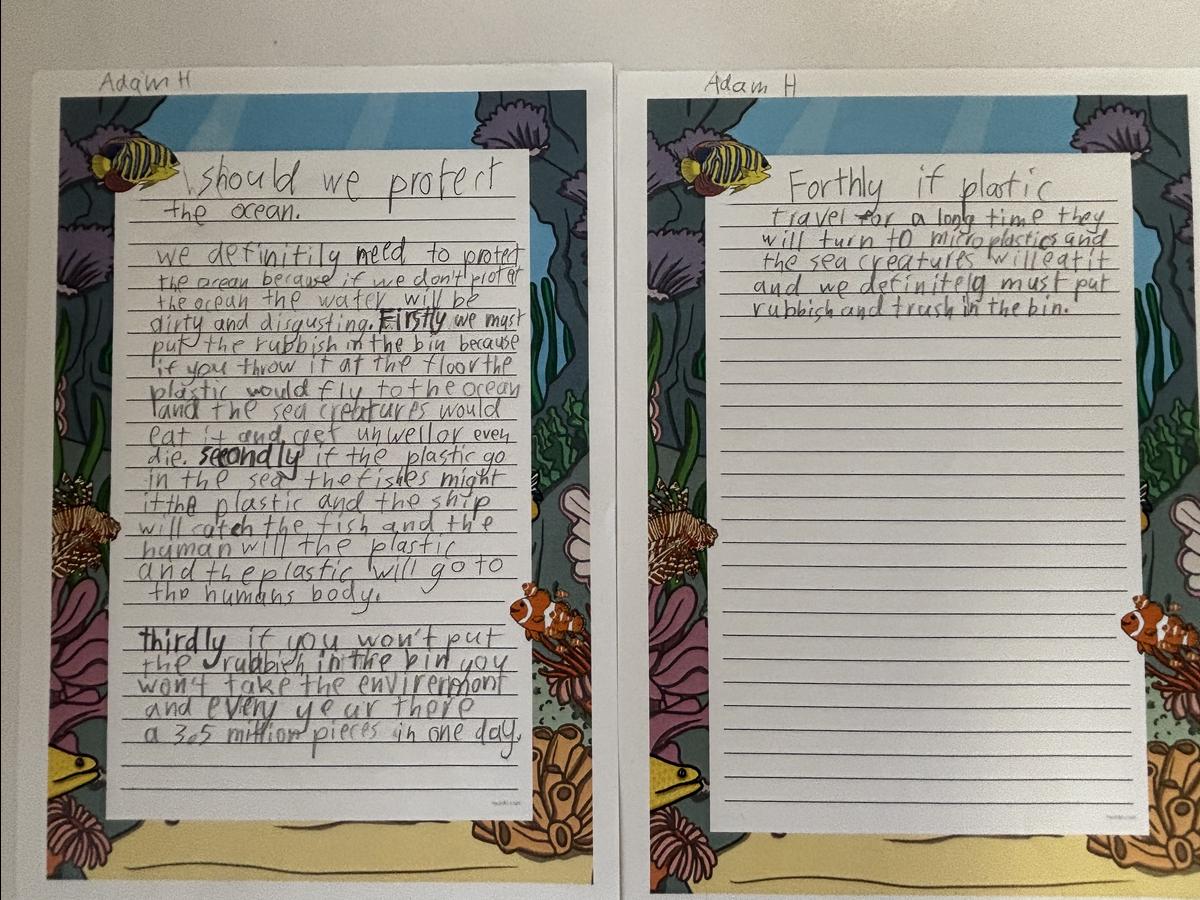 Adam H
should we protect
the ocean.
we definitily need to protect
the ocean because if we don't protet
the ocean the water will be
dirty and disgusting. Firstly we must
put the rubbish in the bin because
if you throw it at the floor the
plastic would fly to the ocean
and the sea creatures would
eat it and get unwell or even
die. secondly if the plastic go
in the sea the fishes might
it the plastic and the ship
will catch the fish and the
human will the plastic
and the plastic will go to
the humans body.
thirdly if you won't put
the rubbish in the bin you
won't take the envirermont
and every year there
a 3.5 million pieces in one day.
Adam H
Forthly if plastic
travel for a long time they
will turn to microplastics and
the sea creatures will eat it
and we definitely must put
rubbish and trash in the bin.